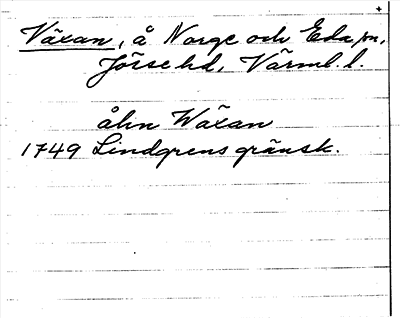 Växan, å Norge och Eda sn,
Jösse hd, Värml. l.
ålin Wäxan
1749 Lindgrens gränsk.